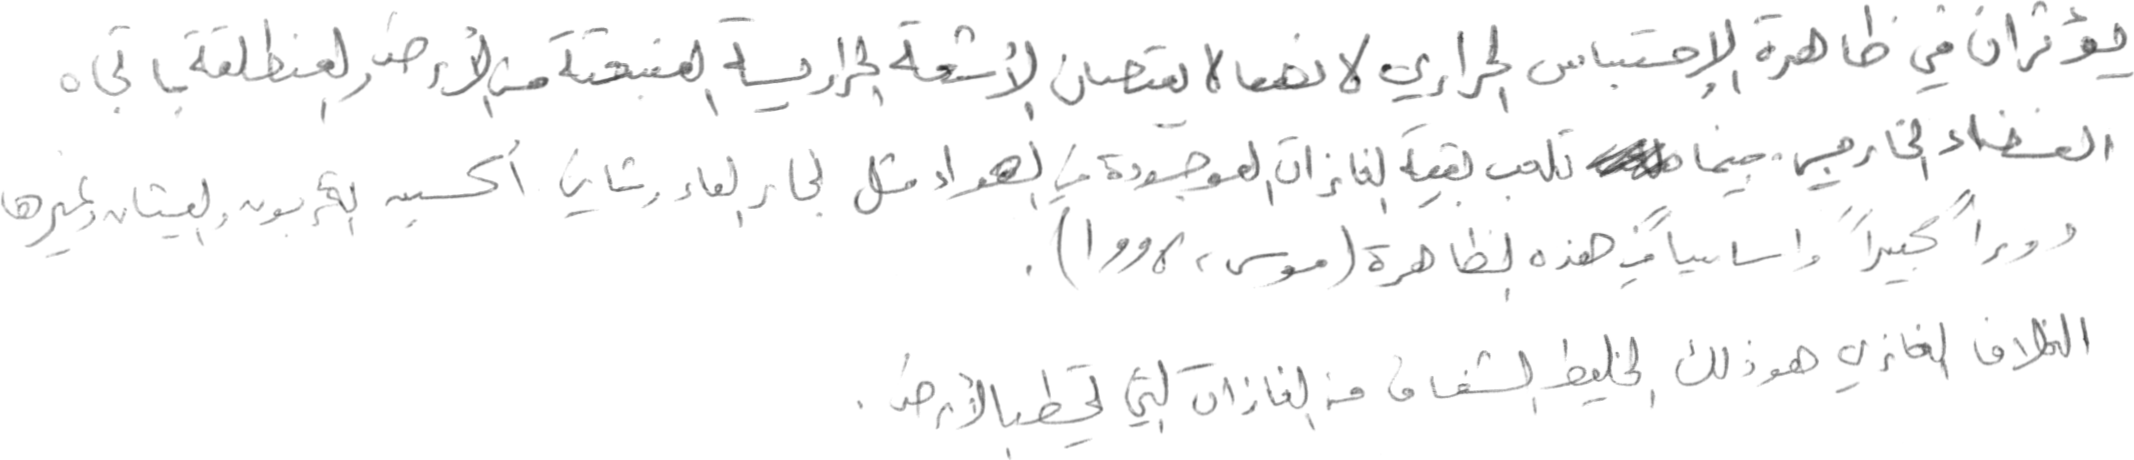 يؤثران في ظاهرة الإحتباس الحراري لانهما لا يمتصان الأشعة الحرارية المنبعثة من الأرض والمنطلقة باتجاه
الفضاء الخارجي، بينما تلعب بقية الغازات الموجودة في الهواء مثل بخار الماء وثاني أكسيد الكربون والميثان وغيرها
دوراً كبيراً واساسياً في هذه الظاهرة (موسى، ١٩٩٤).
الغلاف الغازي هو ذلك الخليط الشفاف من الغازات التي تحيط بالأرض.